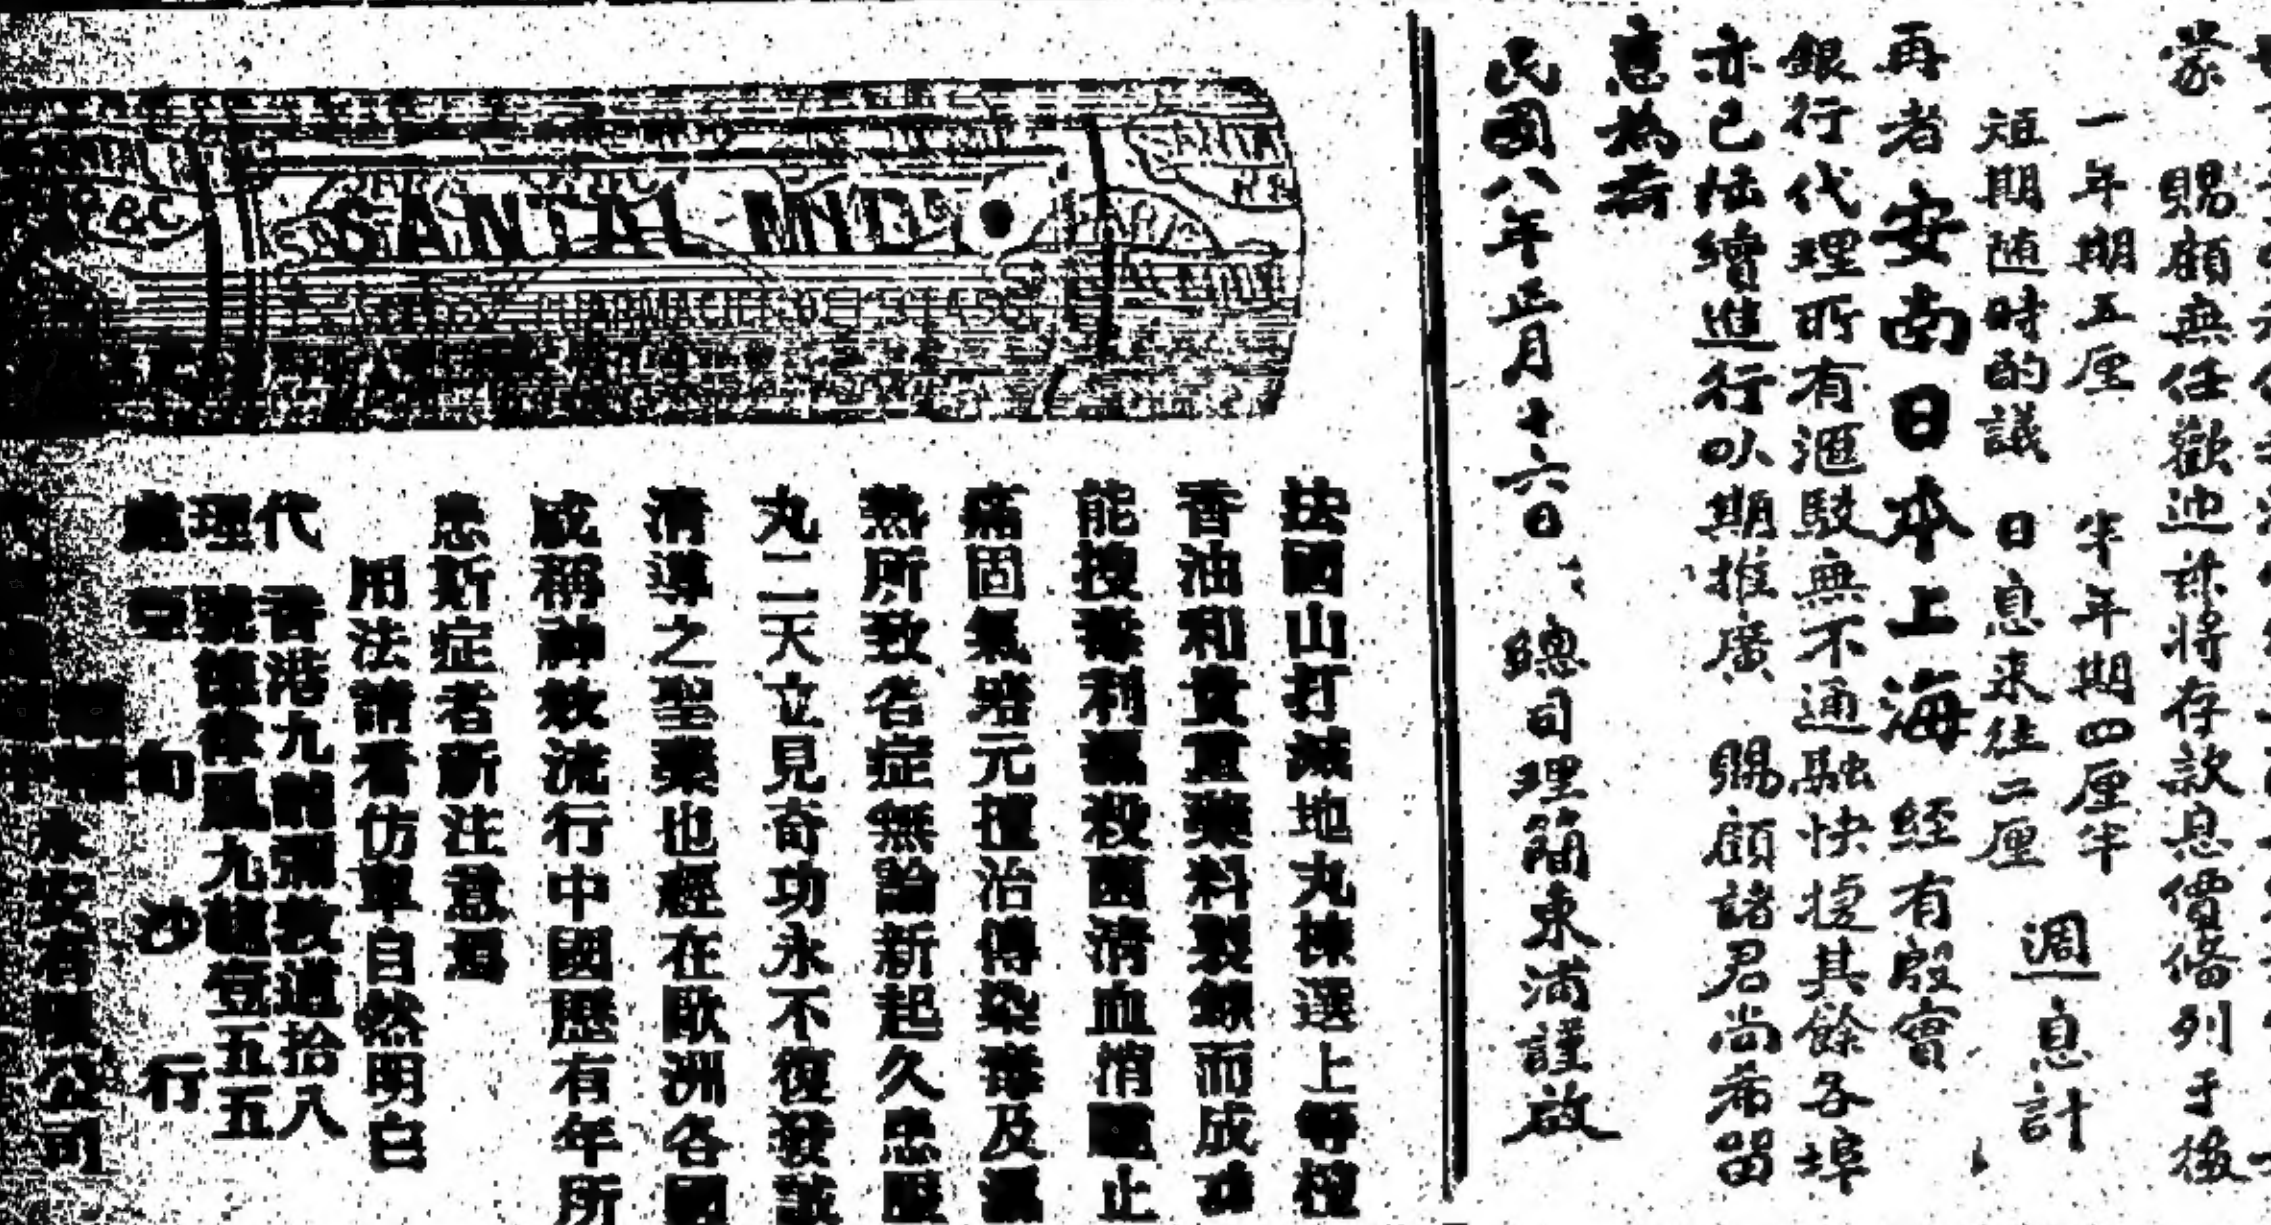 蒙　賜顧無任歡迎謹將存款息價俻列于後
一年期五厘　半年期四厘半
短期随時酌議　日息来往二厘　週息計
再者安南日本上海經有殷實
銀行代理所有滙駁無不通融快捷其餘各埠
亦已陸續進行以期推廣　賜顧諸君尚希留
意為荷
民國八年正月十六日　總司理簡東浦謹啟
SANTAL MIDY
PHARMACIE
法國山打滅地丸揀選上等檀
香油和貴重藥料製煉而成功
能搜毒利濕殺菌清血消腫止
痛固氣培元擅治傳染毒及濕
熱所致各症無論新起久患服
丸二天立見奇功永不復發誠
清導之聖藥也經在歐洲各國
咸稱神效流行中國歷有年所
患斯症者所注意焉
用法請看仿單自然明白
代理處
香港九龍彌敦道拾八
號德律風九龍壹五五
亞　旬　沙　行
永安有限公司